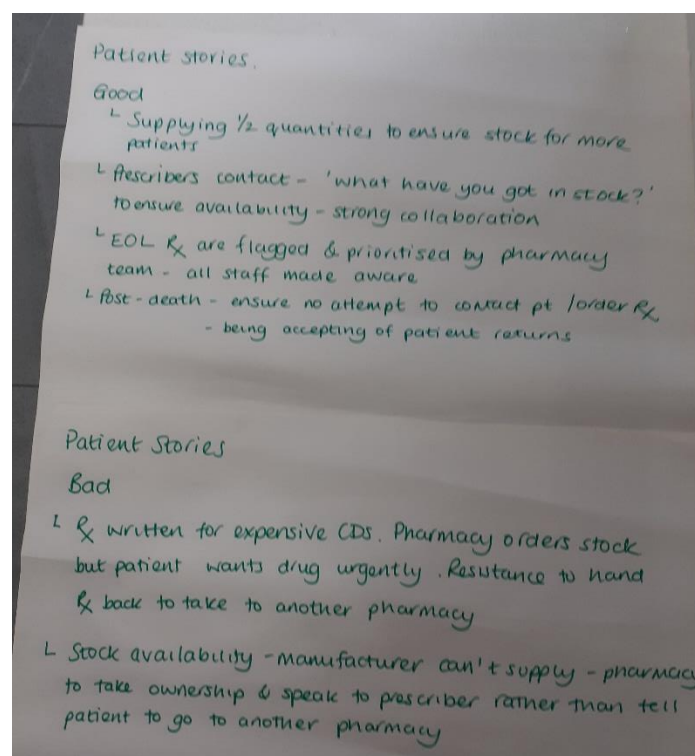 Patient stories.
Good
└ Supplying ½ quantities to ensure stock for more
patients
└ Prescribers contact - 'what have you got in stock?'
to ensure availability - strong collaboration
└ EOL ℞ are flagged & prioritised by pharmacy
team - all staff made aware
└ Post - death - ensure no attempt to contact pt /order ℞
- being accepting of patient returns
Patient Stories
Bad
└ ℞ written for expensive CDs. Pharmacy orders stock
but patient wants drug urgently. Resistance to hand
℞ back to take to another pharmacy
└ Stock availability - manufacturer can't supply - pharmacy
to take ownership & speak to prescriber rather than tell
patient to go to another pharmacy